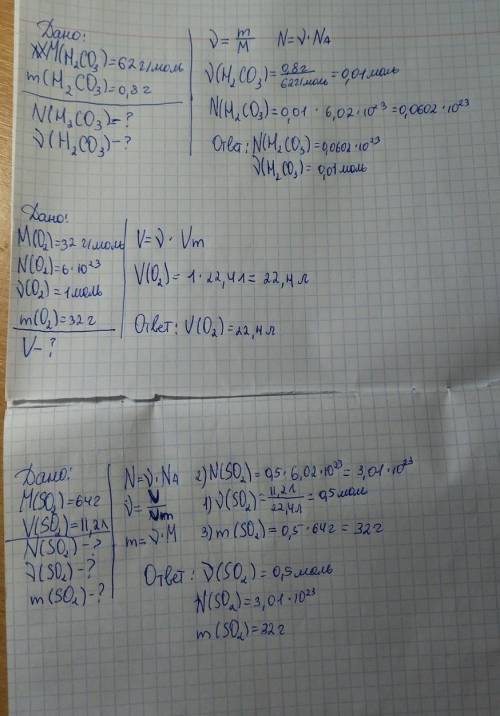 Дано:
M(H₂CO₃)=62г/моль
m(H₂CO₃)=0,8г
N(H₂CO₃)=?
ν(H₂CO₃)-?
ν = m/M   N=ν·NA
ν(H₂CO₃)= 0,8г/62г/моль =0,01моль
N(H₂CO₃)=0,01 · 6,02·10²³=0,0602·10²³
Ответ: N(H₂CO₃)=0,0602·10²³
ν(H₂CO₃)=0,01моль
Дано:
M(O₂)=32г/моль
N(O₂)=6·10²³
ν(O₂)=1моль
m(O₂)=32г
V-?
V=ν· Vm
V(O₂)= 1·22,4л= 22,4л
Ответ: V(O₂)=22,4л
Дано:
M(SO₂)=64г
V(SO₂)=11,2л
N(SO₂)-?
ν(SO₂)-?
m(SO₂)-?
N=ν·NA
ν= V/Vm
m=ν·M
2)N(SO₂)=0,5·6,02·10²³=3,01·10²³
1)ν(SO₂)= 11,2л/22,4л =0,5моль
3)m(SO₂)=0,5·64г=32г
Ответ: ν(SO₂)=0,5моль
N(SO₂)=3,01·10²³
m(SO₂)=32г